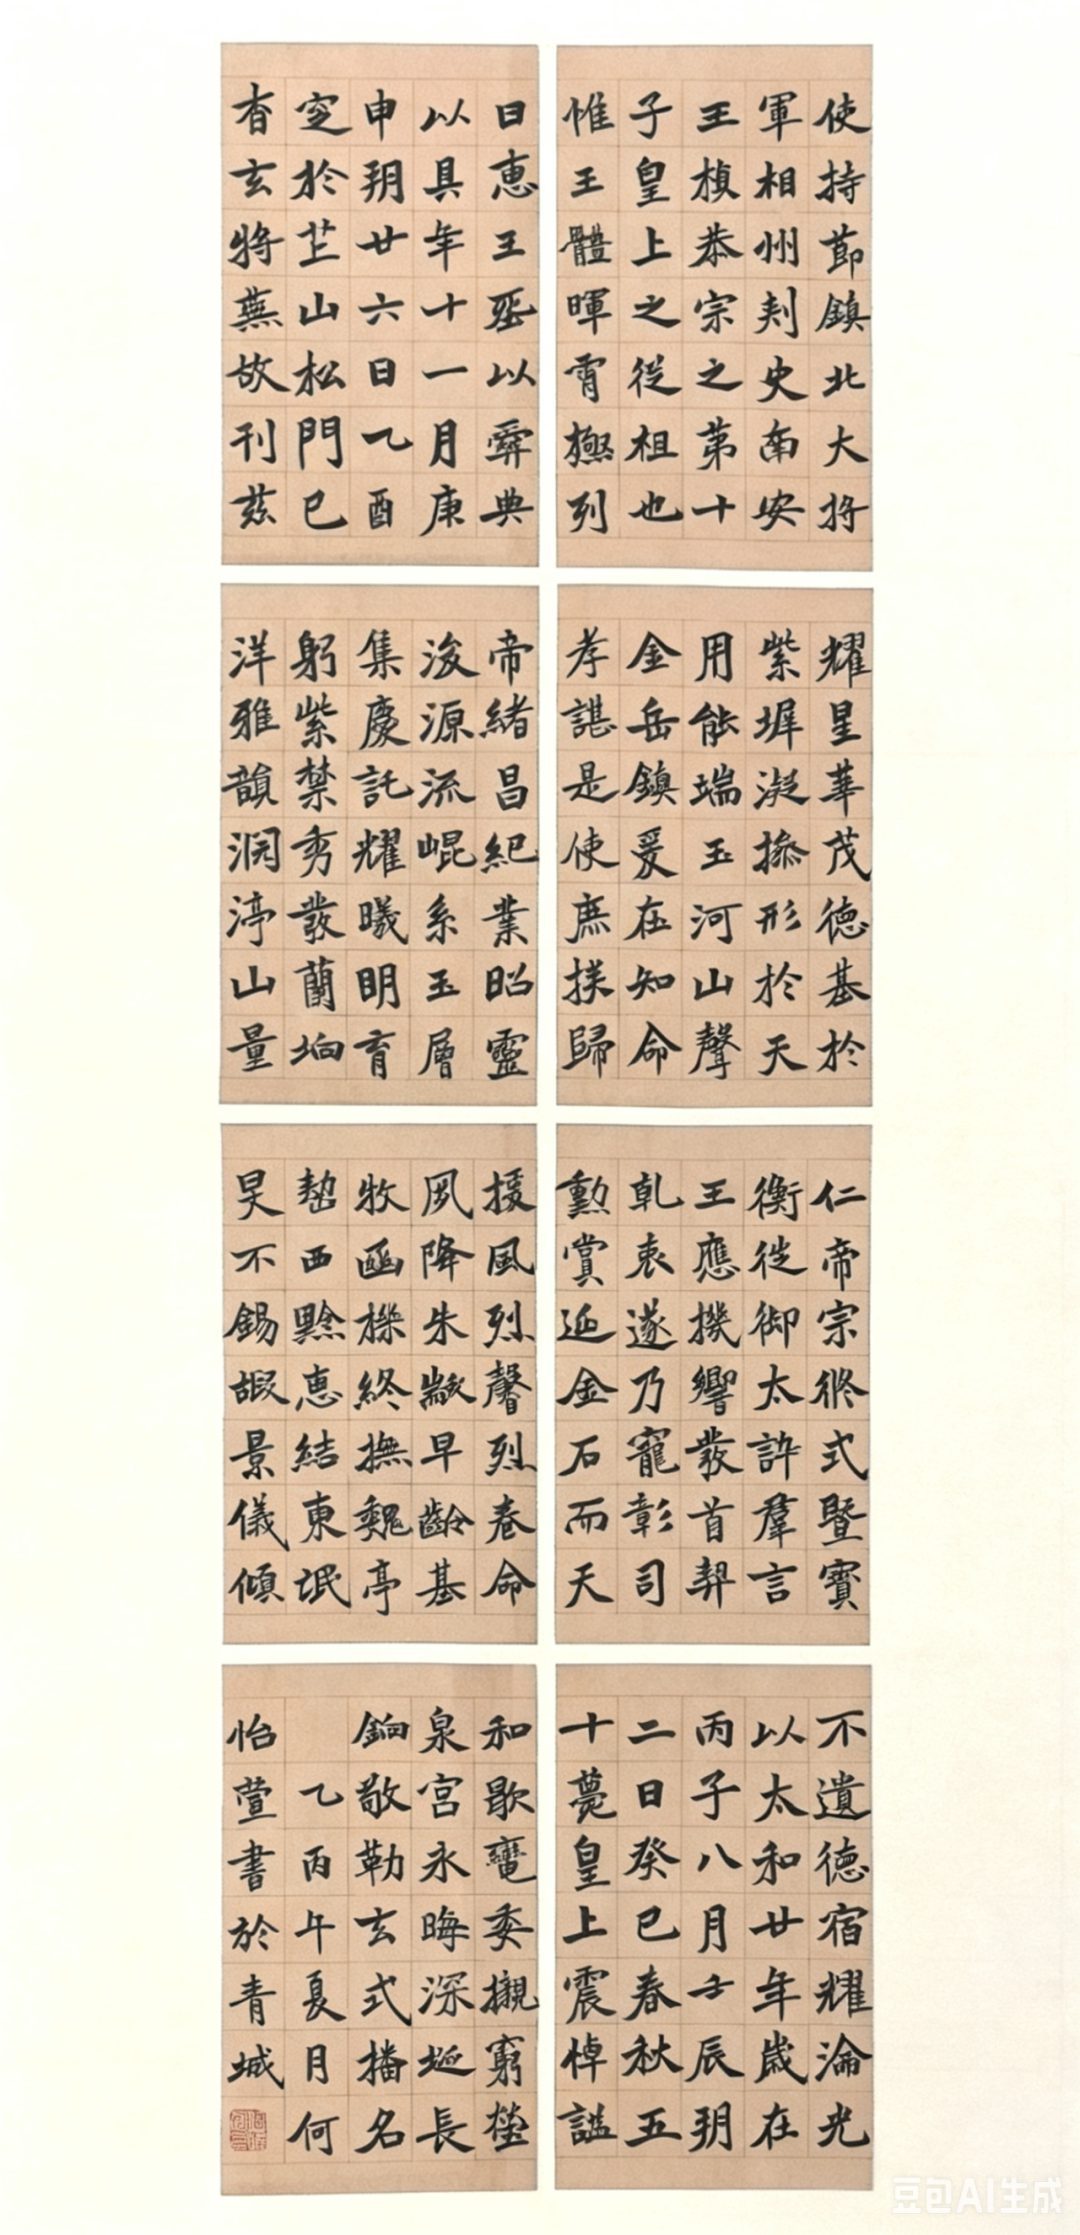 使持節鎮北大将
軍相州刾史南安
王楨恭宗之苐十
子皇上之從祖也
惟王體暉霄極列
耀星華茂德基於
紫墀凝操形於天
用能端玉河山聲
金岳鎮爰在知命
孝諶是使庶族歸
仁帝宗攸式暨寶
衡徙御太許羣言
王應機響發首契
乾衷遂乃寵彰司
勳賞延金石而天
不遺德宿耀淪光
以太和廿年歲在
丙子八月壬辰朔
二日癸巳春秋五
十薨皇上震悼諡
日惠王以彝典
以具年十一月庚
申朔廿六日乙酉
窆於芒山松門已
杳玄將蕪故刊兹
帝緒昌紀業昭靈
浚源流崐系玉層
集慶託耀曦明育
躬紫禁秀發蘭坰
洋雅韻淵渟山量
援風烈馨烈卷命
夙降朱黻早齡基
牧函櫟終撫魏亭
西黔惠結東氓
昊不錫嘏景儀傾
和歇委櫬窮塋
泉宮永晦深埏長
敬勒玄式播名
乙丙午夏月何
怡萱書於青城
豆包AI生成